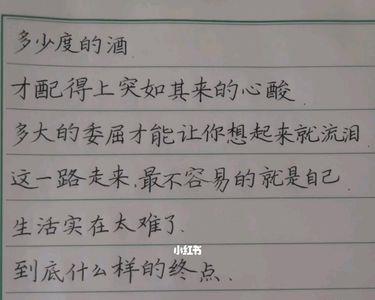 多少度的酒
才配得上突如其来的心酸
多大的委屈才能让你想起来就流泪
这一路走来,最不容易的就是自己
生活实在太难了.
小红书
到底什么样的终点.